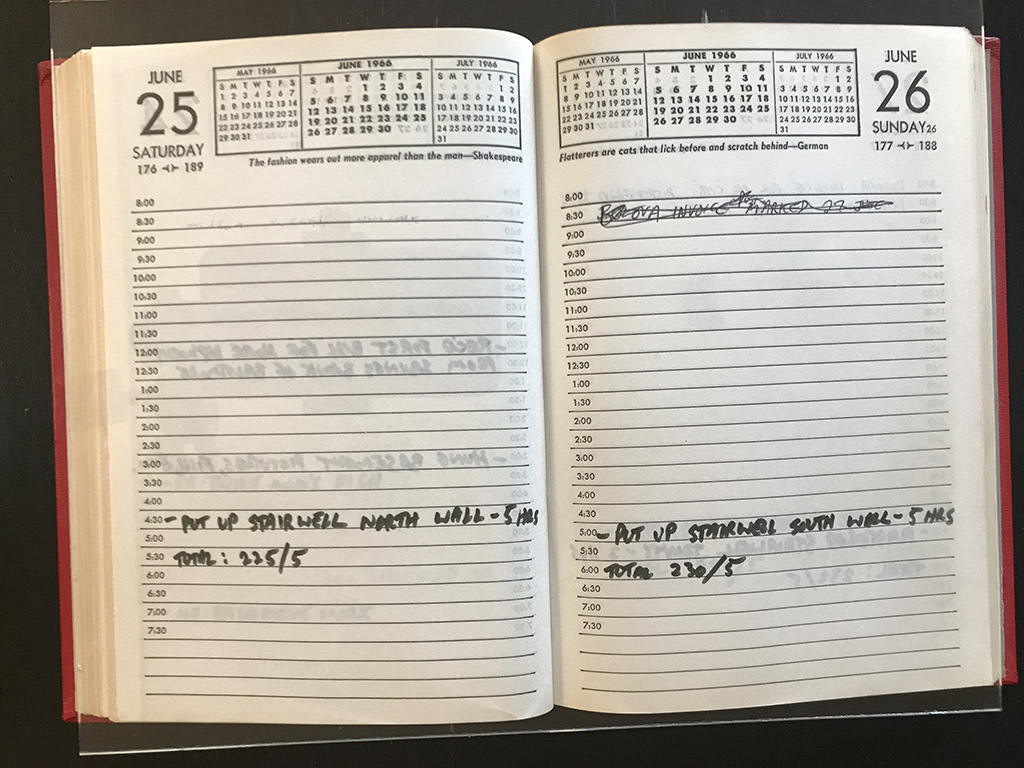 JUNE
25
SATURDAY
176 ⊰⊱ 189
MAY 1966
S M T W T F S
1 2 3 4 5 6 7
8 9 10 11 12 13 14
15 16 17 18 19 20 21
22 23 24 25 26 27 28
29 30 31
JUNE 1966
S M T W T F S
1 2 3 4
5 6 7 8 9 10 11
12 13 14 15 16 17 18
19 20 21 22 23 24 25
26 27 28 29 30
JULY 1966
S M T W T F S
1 2
3 4 5 6 7 8 9
10 11 12 13 14 15 16
17 18 19 20 21 22 23
24 25 26 27 28 29 30
31
The fashion wears out more apparel than the man—Shakespeare
8:00
8:30
9:00
9:30
10:00
10:30
11:00
11:30
12:00
12:30
1:00
1:30
2:00
2:30
3:00
3:30
4:00
4:30 - PUT UP STAIRWELL NORTH WALL - 5 HRS
5:00
5:30 TOTAL: 225/5
6:00
6:30
7:00
7:30
MAY 1966
S M T W T F S
1 2 3 4 5 6 7
8 9 10 11 12 13 14
15 16 17 18 19 20 21
22 23 24 25 26 27 28
29 30 31
JUNE 1966
S M T W T F S
1 2 3 4
5 6 7 8 9 10 11
12 13 14 15 16 17 18
19 20 21 22 23 24 25
26 27 28 29 30
JULY 1966
S M T W T F S
1 2
3 4 5 6 7 8 9
10 11 12 13 14 15 16
17 18 19 20 21 22 23
24 25 26 27 28 29 30
31
JUNE
26
SUNDAY 26
177 ⊰⊱ 188
Flatterers are cats that lick before and scratch behind—German
8:00
8:30 INVOICE MARKED
9:00
9:30
10:00
10:30
11:00
11:30
12:00
12:30
1:00
1:30
2:00
2:30
3:00
3:30
4:00
4:30
5:00 - PUT UP STAIRWELL SOUTH WALL - 5 HRS
5:30
6:00 TOTAL 230/5
6:30
7:00
7:30